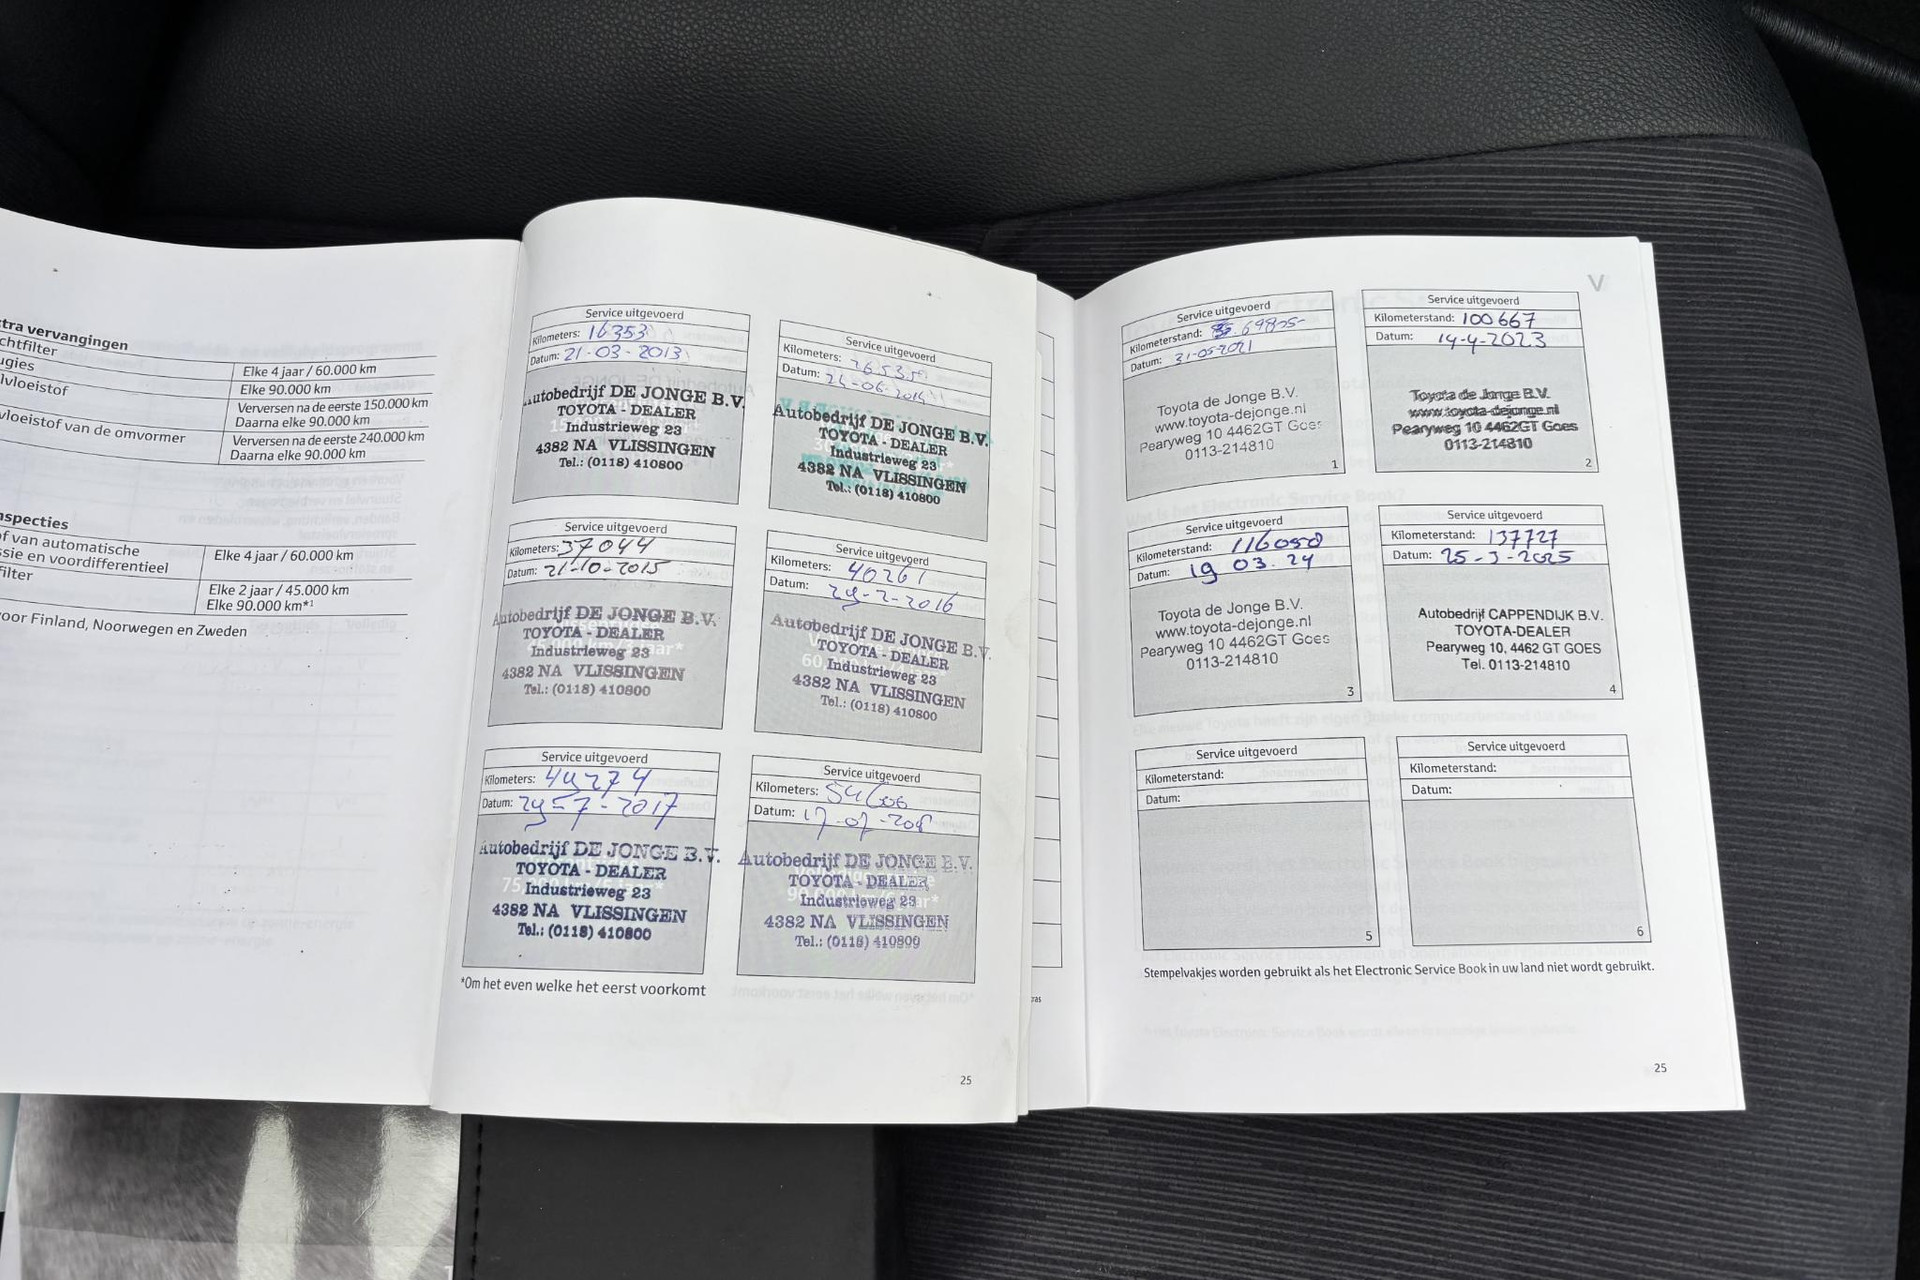 tra vervangingen
chtfilter
Elke 4 jaar / 60.000 km
ugies
Elke 90.000 km
lvloeistof
Verversen na de eerste 150.000 km
Daarna elke 90.000 km
vloeistof van de omvormer
Verversen na de eerste 240.000 km
Daarna elke 90.000 km
nspecties
f van automatische
ssie en voordifferentieel
Elke 4 jaar / 60.000 km
filter
Elke 2 jaar / 45.000 km
Elke 90.000 km*¹
voor Finland, Noorwegen en Zweden
Service uitgevoerd
Kilometers: 16353
Datum: 21-03-2013
Autobedrijf DE JONGE B.V.
TOYOTA - DEALER
Industrieweg 23
4382 NA VLISSINGEN
Tel.: (0118) 410800
Service uitgevoerd
Kilometers:
Datum:
Autobedrijf DE JONGE B.V.
TOYOTA - DEALER
Industrieweg 23
4382 NA VLISSINGEN
Tel.: (0118) 410800
Service uitgevoerd
Kilometers: 37044
Datum: 21-10-2015
Autobedrijf DE JONGE B.V.
TOYOTA - DEALER
Industrieweg 23
4382 NA VLISSINGEN
Tel.: (0118) 410800
Service uitgevoerd
Kilometers: 40261
Datum:
Autobedrijf DE JONGE B.V.
TOYOTA - DEALER
Industrieweg 23
4382 NA VLISSINGEN
Tel.: (0118) 410800
Service uitgevoerd
Kilometers:
Datum: 29-7-2017
Autobedrijf DE JONGE B.V.
TOYOTA - DEALER
Industrieweg 23
4382 NA VLISSINGEN
Tel.: (0118) 410800
Service uitgevoerd
Kilometers:
Datum:
Autobedrijf DE JONGE B.V.
TOYOTA - DEALER
Industrieweg 23
4382 NA VLISSINGEN
Tel.: (0118) 410800
*Om het even welke het eerst voorkomt
25
V
Service uitgevoerd
Kilometerstand:
Datum: 31-05-2021
Toyota de Jonge B.V.
www.toyota-dejonge.nl
Pearyweg 10 4462GT Goes
0113-214810
1
Service uitgevoerd
Kilometerstand: 100667
Datum: 14-4-2023
Toyota de Jonge B.V.
www.toyota-dejonge.nl
Pearyweg 10 4462GT Goes
0113-214810
2
Service uitgevoerd
Kilometerstand: 116050
Datum: 19 03. 24
Toyota de Jonge B.V.
www.toyota-dejonge.nl
Pearyweg 10 4462GT Goes
0113-214810
3
Service uitgevoerd
Kilometerstand: 137727
Datum: 25-3-2025
Autobedrijf CAPPENDIJK B.V.
TOYOTA-DEALER
Pearyweg 10, 4462 GT GOES
Tel. 0113-214810
4
Service uitgevoerd
Kilometerstand:
Datum:
5
Service uitgevoerd
Kilometerstand:
Datum:
6
Stempelvakjes worden gebruikt als het Electronic Service Book in uw land niet wordt gebruikt.
25